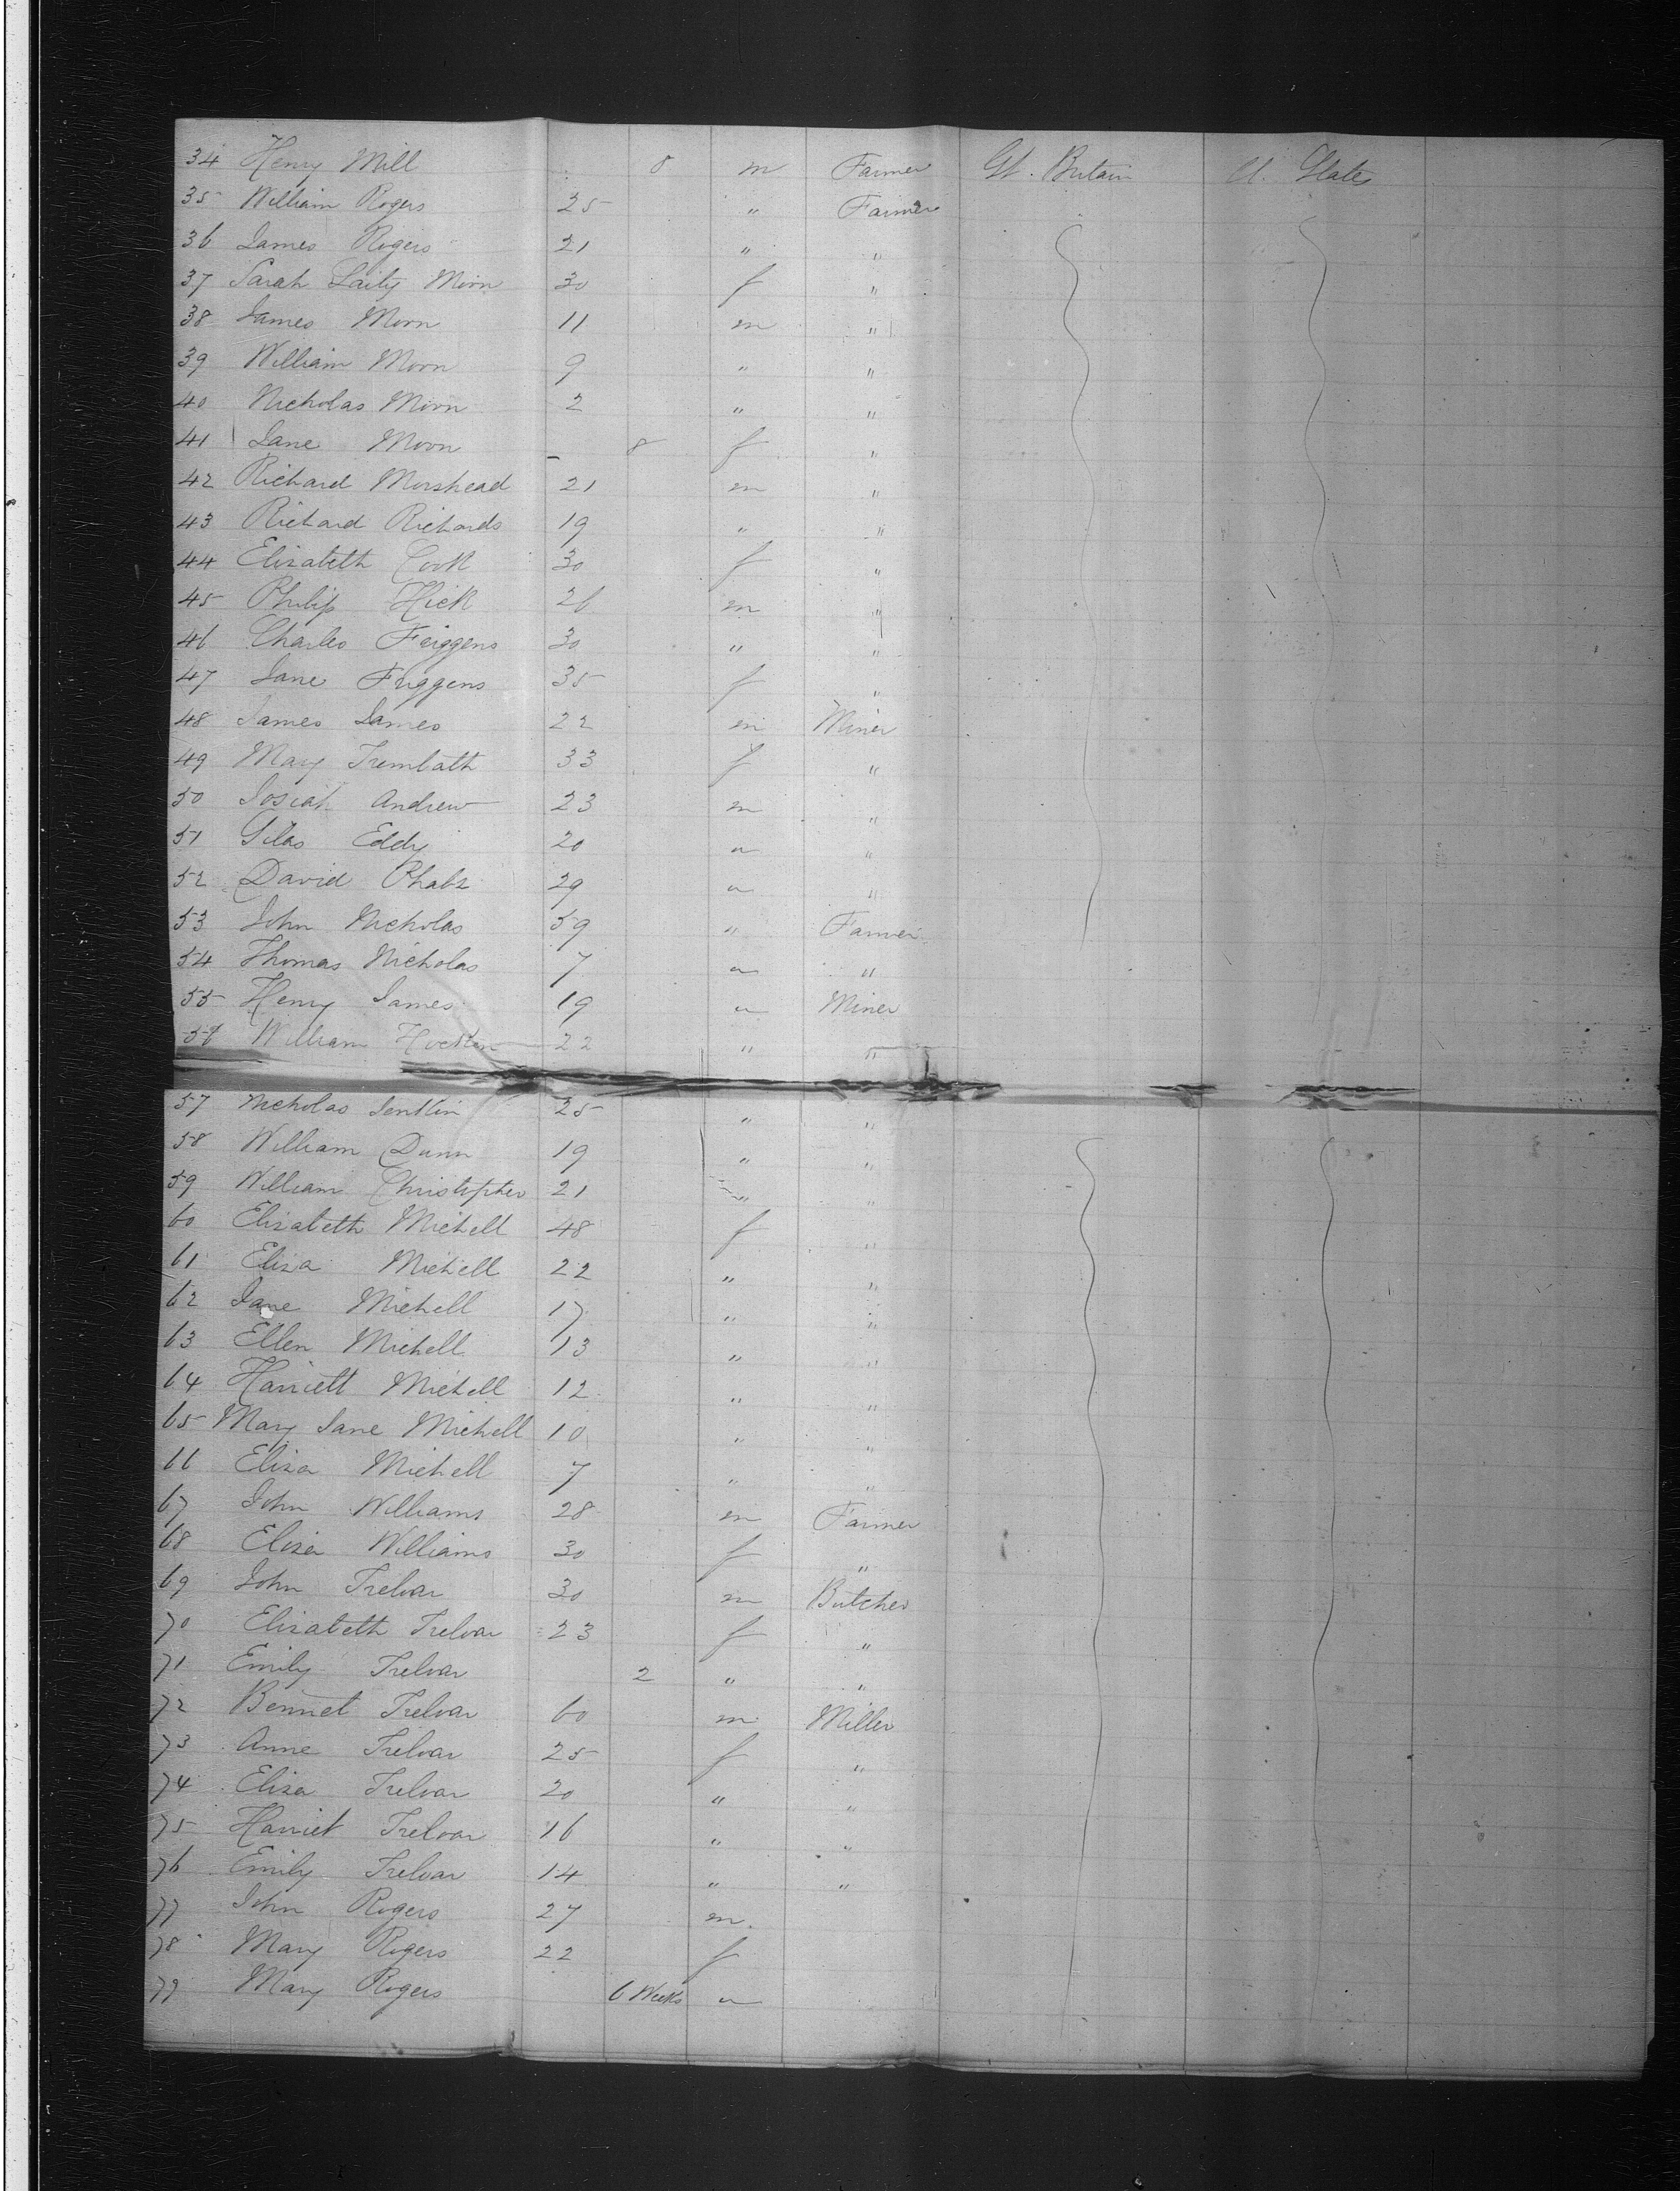 34 Henry Mill 8 m Farmer Gt. Britain U. States
35 William Rogers 25 " Farmer
36 James Rogers 21 " "
37 Sarah Laity Moon 30 f "
38 James Moon 11 m "
39 William Moon 9 " "
40 Nicholas Moon 2 " "
41 Jane Moon - 8 f "
42 Richard Morshead 21 m "
43 Richard Richards 19 " "
44 Elizabeth Cook 30 f "
45 Philip Hick 26 m "
46 Charles Friggens 30 " "
47 Jane Friggens 35 f "
48 James James 22 m Miner
49 Mary Trembath 33 f "
50 Josiah Andrew 23 m "
51 Silas Eddy 20 " "
52 David 29 " "
53 John Nicholas 59 " Farmer
54 Thomas Nicholas 7 " "
55 Henry James 19 " Miner
56 William Hocken 22 " "
57 Nicholas Jenkin 25 " "
58 William Dunn 19 " "
59 William Christopher 21 " "
60 Elizabeth Michell 48 f "
61 Eliza Michell 22 " "
62 Jane Michell 17 " "
63 Ellen Michell 13 " "
64 Harriett Michell 12 " "
65 Mary Jane Michell 10 " "
66 Eliza Michell 7 " "
67 John Williams 28 m Farmer
68 Eliza Williams 30 f "
69 John Treloar 30 m Butcher
70 Elizabeth Treloar 23 f "
71 Emily Treloar 2 " "
72 Bennet Treloar 60 m Miller
73 Anne Treloar 25 f "
74 Eliza Treloar 20 " "
75 Harriet Treloar 16 " "
76 Emily Treloar 14 " "
77 John Rogers 27 m.
78 Mary Rogers 22 f
79 Mary Rogers 6 Weeks "